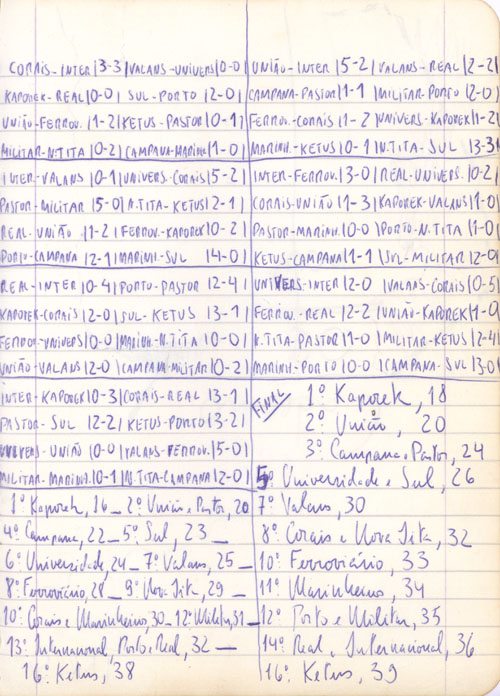 CORAIS-INTER |3-3| VALANS-UNIVERS |0-0|
KAPOREK-REAL |0-0| SUL-PORTO |2-0|
UNIÃO-FERROV. |1-2| KETUS-PASTOR |0-1|
MILITAR-N.TITA |0-2| CAMPANA-MARINH |1-0|
INTER-VALANS |0-1| UNIVERS.CORAIS |5-2|
PASTOR-MILITAR |5-0| N.TITA-KETUS |2-1|
REAL-UNIÃO |1-2| FERROV-KAPOREK |0-2|
PORTO-CAMPANA |2-1| MARINH-SUL |4-0|
REAL-INTER |0-4| PORTO-PASTOR |2-4|
KAPOREK-CORAIS |2-0| SUL-KETUS |3-1|
FERROV-UNIVERS |0-0| MARINH-N.TITA |0-0|
UNIÃO-VALANS |2-0| CAMPANA-MILITAR |0-2|
INTER-KAPOREK |0-3| CORAIS-REAL |3-1|
PASTOR-SUL |2-2| KETUS-PORTO |3-2|
UNIVERS-UNIÃO |0-0| VALANS-FERROV. |5-0|
MILITAR-MARINH. |0-1| N.TITA-CAMPANA |2-0|
1º Kaporek, 16 _ 2º União e Pastor, 20
4º Campana, 22 _ 5º Sul, 23 _
6º Universidade, 24 _ 7º Valans, 25 _
8º Ferroviário, 28 _ 9º Nova Tita, 29 _
10º Corais e Marinheiros, 30 _ 12º Militar, 31 _
13º Internacional, Porto e Real, 32 _
16º Ketus, 38
UNIÃO-INTER |5-2| VALANS-REAL |2-2|
CAMPANA-PASTOR |1-1| MILITAR-PORTO |2-0|
FERROV.-CORAIS |1-2| UNIVERS-KAPOREK |1-2|
MARINH.-KETUS |0-1| N.TITA-SUL |3-3|
INTER-FERROV. |3-0| REAL-UNIVERS. |0-2|
CORAIS-UNIÃO |1-3| KAPOREK-VALANS |1-0|
PASTOR-MARINH. |0-0| PORTO-N.TITA |1-0|
KETUS-CAMPANA |1-1| SUL-MILITAR |2-0|
UNIVERS-INTER |2-0| VALANS-CORAIS |0-5|
FERROV.-REAL |2-2| UNIÃO-KAPOREK |1-0|
N.TITA-PASTOR |1-0| MILITAR-KETUS |2-4|
MARINH-PORTO |0-0| CAMPANA-SUL |3-0|
FINAL
1º Kaporek, 18
2º União, 20
3º Campana e Pastor, 24
5º Universidade e Sul, 26
7º Valans, 30
8º Corais e Nova Tita, 32
10º Ferroviário, 33
11º Marinheiros, 34
12º Porto e Militar, 35
14º Real e Internacional, 36
16º Ketus, 39